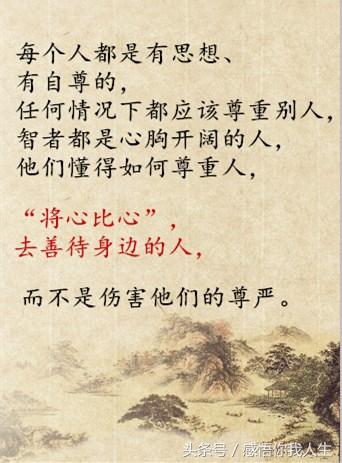 每个人都是有思想、
有自尊的，
任何情况下都应该尊重别人，
智者都是心胸开阔的人，
他们懂得如何尊重人，
“将心比心”，
去善待身边的人，
而不是伤害他们的尊严。
头条号 / 感悟你我人生